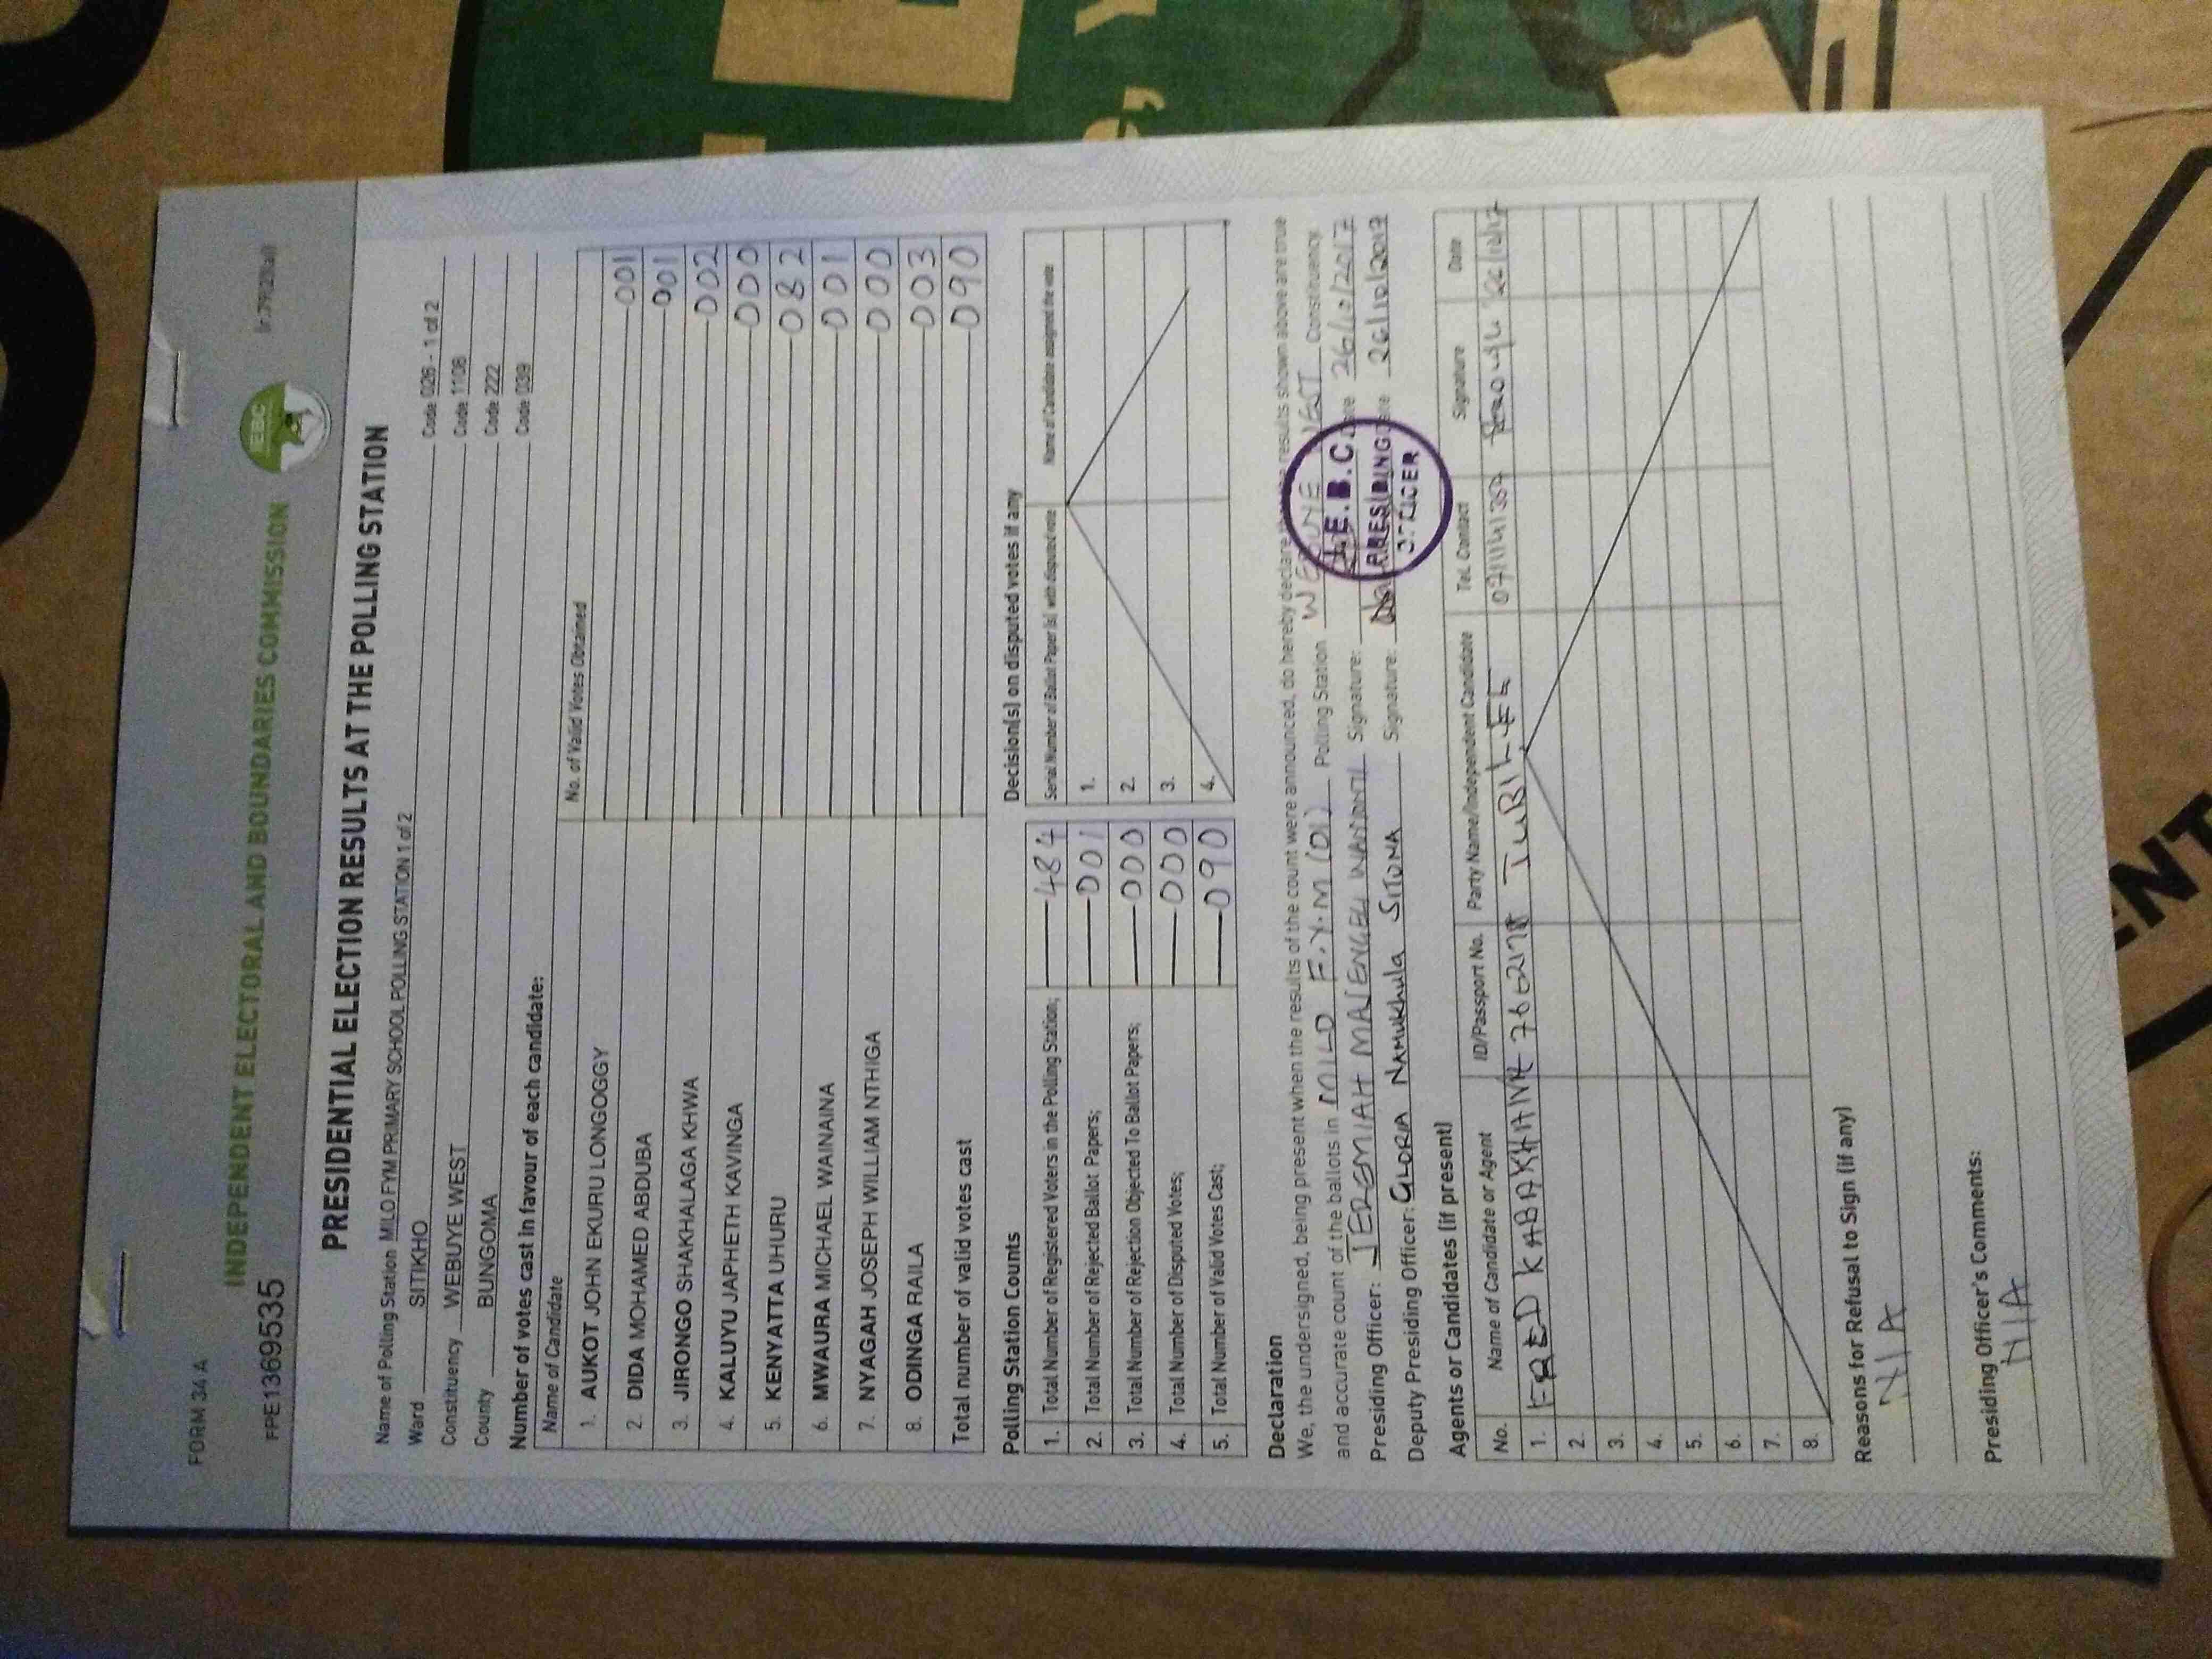 FORM 34 A
INDEPENDENT ELECTORAL AND BOUNDARIES COMMISSION
IEBC
FPE1369535
PRESIDENTIAL ELECTION RESULTS AT THE POLLING STATION
Name of Polling Station MILO FYM PRIMARY SCHOOL POLLING STATION 1 of 2 Code 026 - 1 of 2
Ward SITIKHO Code 1108
Constituency WEBUYE WEST Code 222
County BUNGOMA Code 039
Number of votes cast in favour of each candidate:
Name of Candidate No. of Valid Votes Obtained
1. AUKOT JOHN EKURU LONGOGGY 001
2. DIDA MOHAMED ABDUBA 001
3. JIRONGO SHAKHALAGA KHWA 002
4. KALUYU JAPHETH KAVINGA 000
5. KENYATTA UHURU 082
6. MWAURA MICHAEL WAINAINA 001
7. NYAGAH JOSEPH WILLIAM NTHIGA 000
8. ODINGA RAILA 003
Total number of valid votes cast 090
Polling Station Counts
1. Total Number of Registered Voters in the Polling Station; 484
2. Total Number of Rejected Ballot Papers; 001
3. Total Number of Rejection Objected To Ballot Papers; 000
4. Total Number of Disputed Votes; 000
5. Total Number of Valid Votes Cast; 090
Decision(s) on disputed votes if any
Serial Number of Ballot Paper (s) with disputed vote Name of Candidate assigned the vote
1.
2.
3.
4.
Declaration
We, the undersigned, being present when the results of the count were announced, do hereby declare results shown above are true
and accurate count of the ballots in MILO F.Y.M (01) Polling Station WEBUYE WEST Constituency.
Presiding Officer: JEREMIAH Signature: 26/10/2017
Deputy Presiding Officer: GLORIA NAMUKHULA SITUMA Signature: 26/10/2017
I.E.B.C
PRESIDING
OFFICER
Agents or Candidates (if present)
No. Name of Candidate or Agent ID/Passport No. Party Name/Independent Candidate Tel. Contact Signature Date
1. FRED JUBILEE
2.
3.
4.
5.
6.
7.
8.
Reasons for Refusal to Sign (if any)
N/A
Presiding Officer's Comments:
N/A
ENT